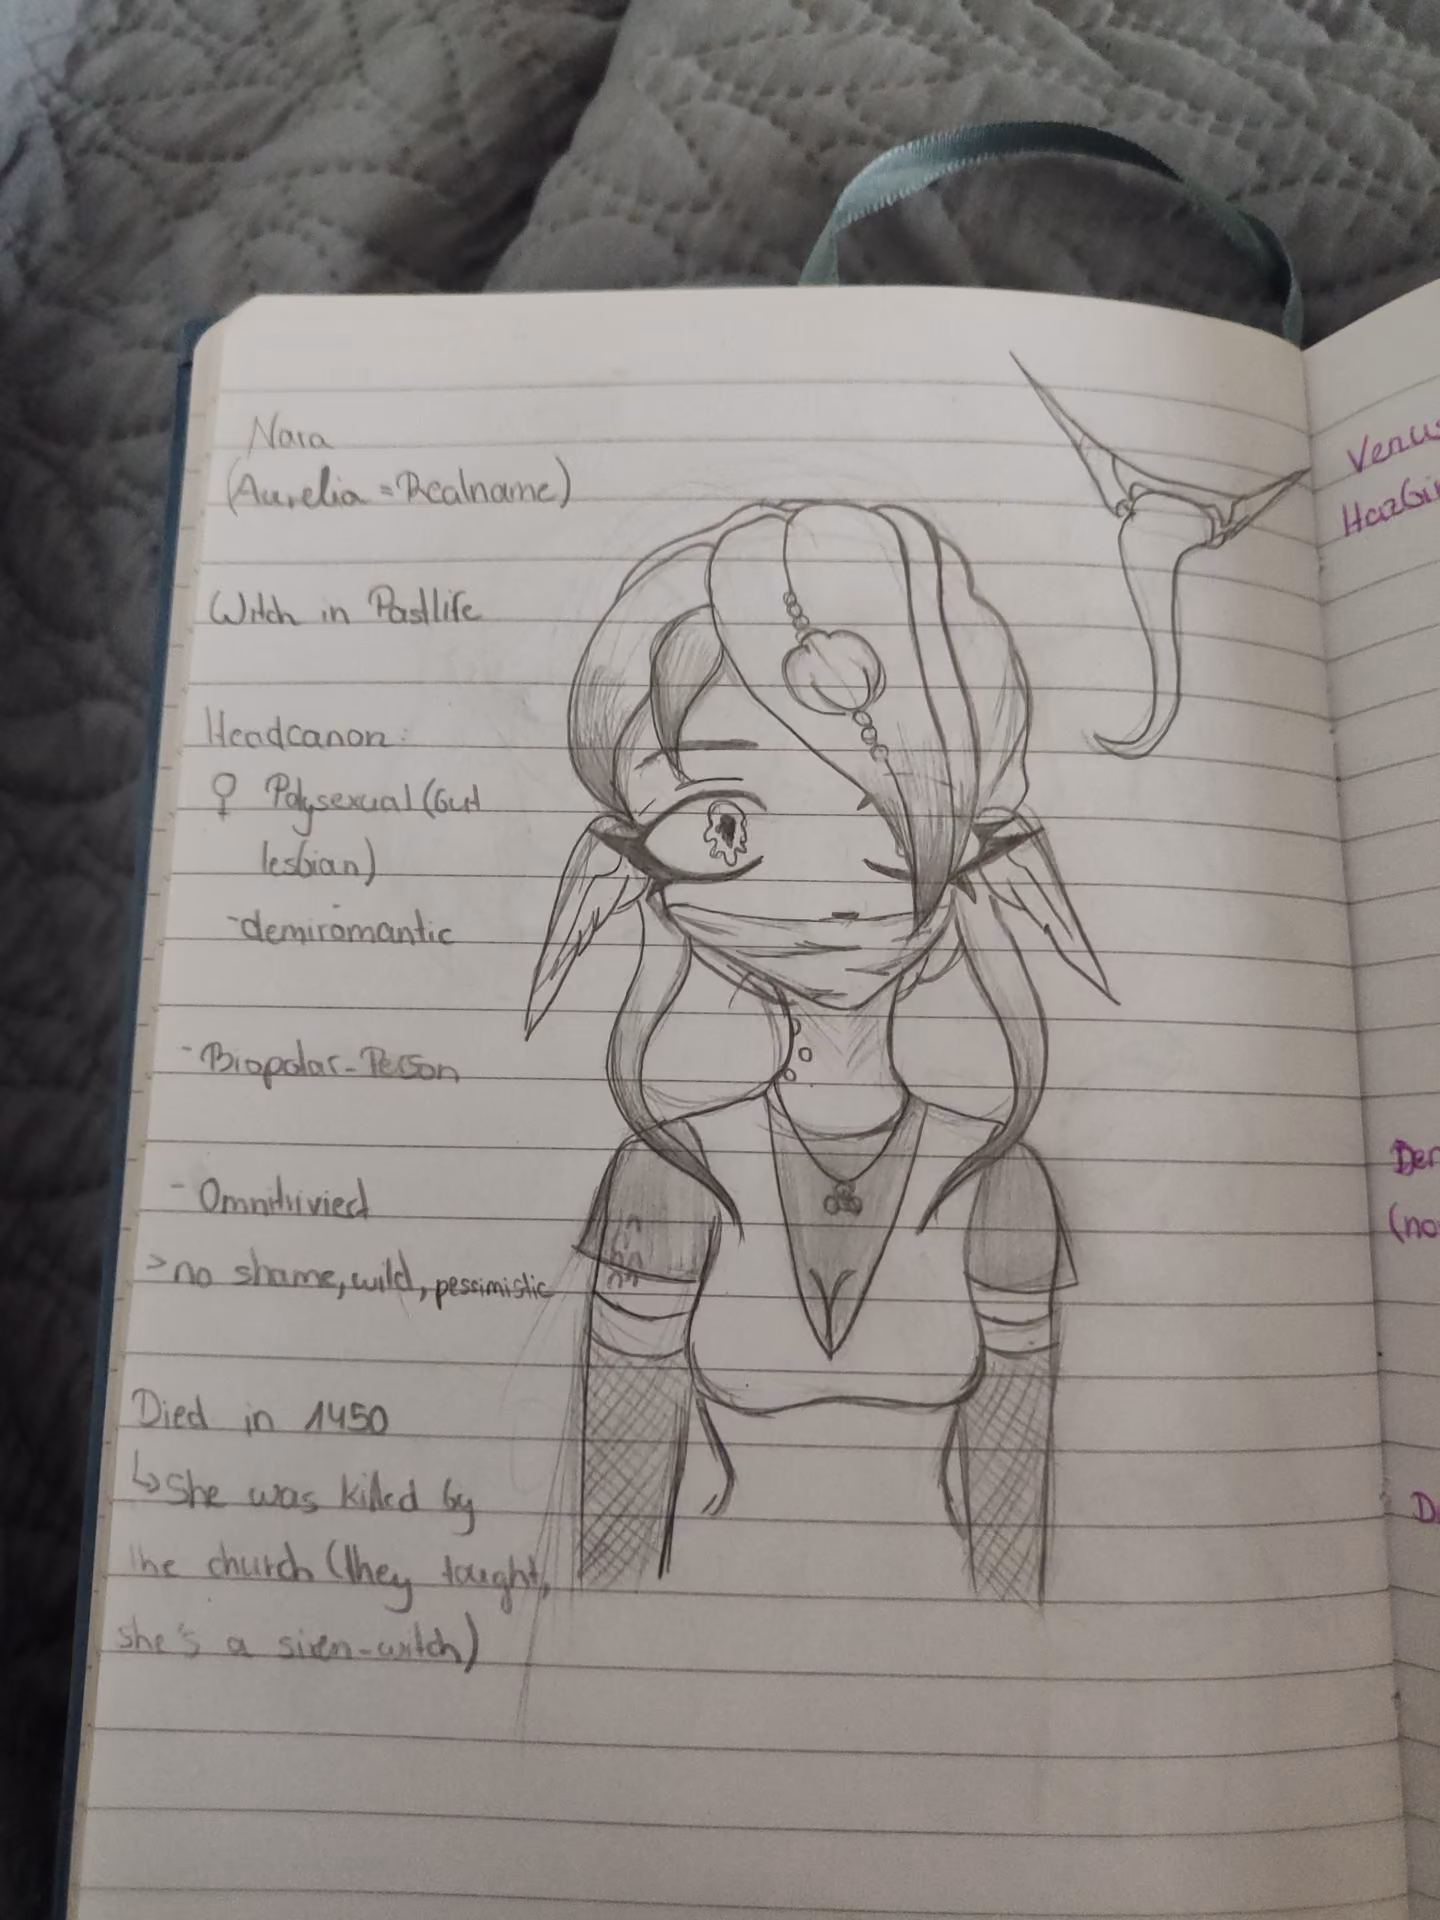 Nara
(Aurelia = Realname)
Witch in Pastlife
Headcanon:
♀ Polysexual (but
lesbian)
-demiromantic
-Biopolar-Person
- Omnitrivied
> no shame, wild, pessimistic
Died in 1450
↳ she was killed by
the church (they tought,
she's a siren-witch)
Venus